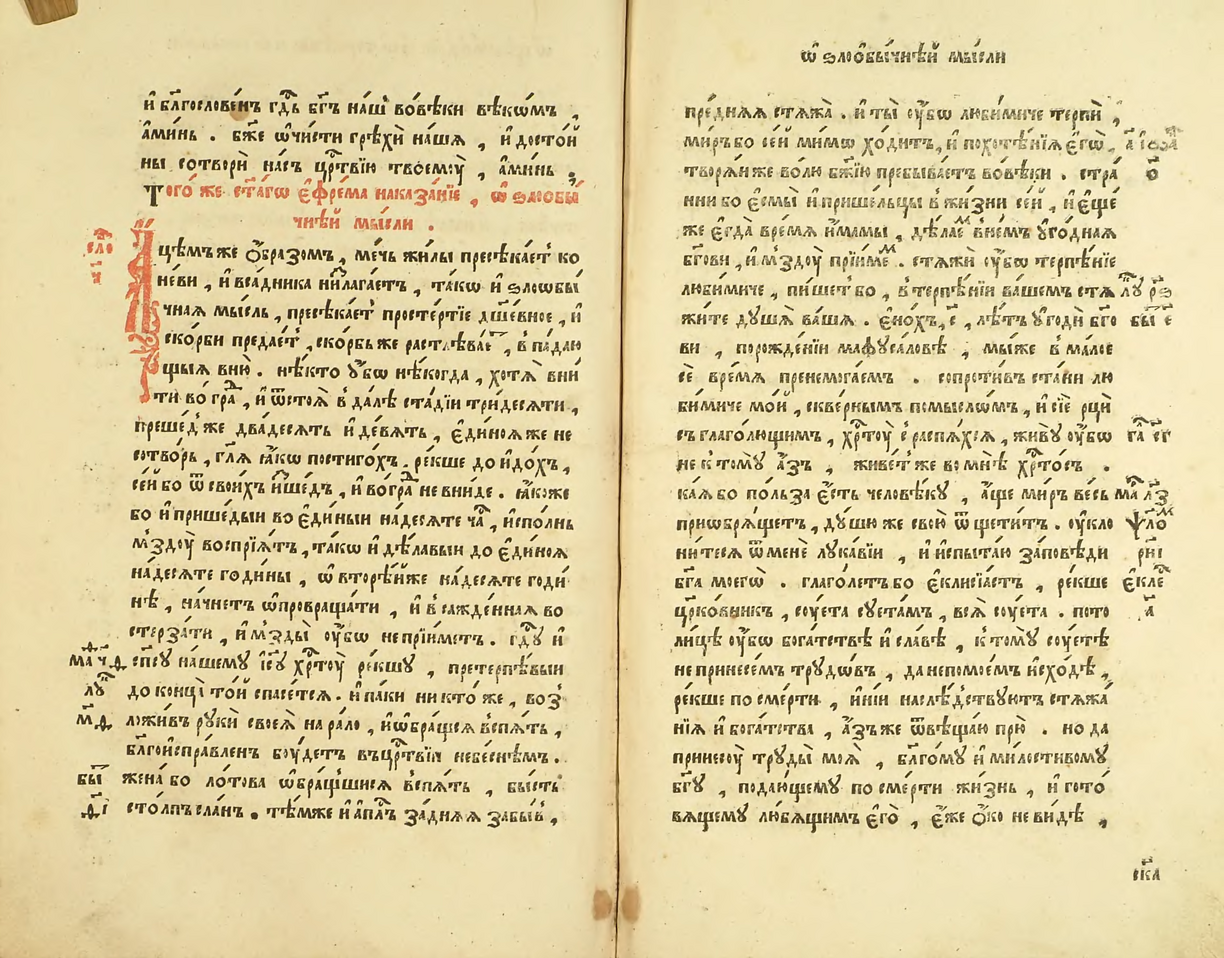 и҆ бл҃гослове́нъ гдⷭ҇ь бг҃ъ нашъ во́вѣки вѣкѡ́мъ ,
а҆минь . бж҃е ѡ҆чи́сти грѣхѝ на́шѧ , и҆ досто́й
ны сотворѝ насъ црⷭ҇твїю твоемꙋ̀ , а҆минь .
Того́ же ст҃а́гѡ є҆фре́ма наказа́нїе , ѡ҆ ѕлоѡбы́
чнѣй мы́сли .
сло
ч҃
Ꙗ҆цѣ́мъ же ѻ҆́бразомъ , ме́чь жи́лы пресѣка́етъ ко
не́ви , и҆ вса́дника низлага́етъ , та́кѡ и҆ ѕлоѡбы́
чнаѧ мы́сль , пресѣка́етъ просте́ртїе дш҃е́вное , и҆
ско́рби предае́тъ , ско́рбь же растлѣва́етъ , впа́даю
щыѧ вню̀ . нѣ́кто ᲂу҆́бѡ нѣ́когда , хотѧ̀ вни
ти во гра́дъ , и҆ ѿстоѧ̀ в да́лѣ ста́дїи три́десѧти ,
преше́д же два́десѧть и҆ де́вѧть , є҆ди́ноѧ же не
сотво́рь , гл҃ѧ ꙗ҆́кѡ пости́гохъ . ре́кше до и҆до́хъ ,
се́й бо ѿ свои́хъ и҆ше́дъ , и҆ во гра́дъ не вни́де . ꙗ҆́коже
бо и҆ прише́дыи во є҆ди́ныи на́десѧте ча́съ , и҆спо́лнь
мздꙋ̀ воспрїѧ́тъ , та́кѡ и҆ дѣ́лавыи до є҆ди́ноѧ
на́десѧте годи́ны , ѡ҆ вторѣ́йже на́десѧте годи
нѣ , на́чнетъ ѡ҆провраща́ти , и҆ всажде́ннаѧ во
стерза́ти , и҆ мзды̀ ᲂу҆́бѡ непрїи́метъ . гдⷭ҇ꙋ и҆
ма ч҃д сп҃сꙋ на́шемꙋ і҆с҃ꙋ хрⷭ҇тꙋ̀ ре́кшꙋ , претерпѣ́выи
лꙋ до конца̀ то́й спасе́тсѧ . и҆ па́ки никто́же , воз
м҃д ложи́въ рꙋ́ки своеѧ̀ на ра́ло , и҆ ѡ҆бра́щсѧ вспѧ́ть ,
бл҃гои҆спра́вленъ бꙋ́детъ въ црⷭ҇твїи небе́снѣмъ .
бы жена́ бо ло́това ѡ҆бра́щшисѧ вспѧ́ть , бы́сть
д҃і сто́лпъ сла́нъ . тѣ́мже и҆ а҆пⷭ҇лъ за́днѧѧ забы́въ ,
ѡ҆ ѕлоѡбы́чнѣй мы́сли
пре́днѧѧ стѧжа̀ . и҆ ты̀ ᲂу҆́бѡ люби́миче терпѝ ,
ми́ръ бо се́й ми́мѡ хо́дитъ , и҆ похотѣ́нїѧ є҆гѡ̀ , а҆ і҆ѡа
творѧ́и же во́лю бж҃їю пребыва́етъ во́вѣки . стра
о҃
нни бо є҆смы̀ и҆ прише́льцы в жи́зни се́й , и҆ є҆ще́
же є҆гда̀ вре́мѧ и҆́мамы , дѣ́лаеⷨ в не́мъ ᲂу҆го́днаѧ
бг҃ови , и҆ мздꙋ̀ прїи́меⷨ . стѧжѝ ᲂу҆́бѡ терпѣ́нїе
люби́миче , пи́шетъ бо , в терпѣ́нїи ва́шемъ стѧ лꙋ р҃ѕ
жи́те дꙋ́шѧ ва́шѧ . є҆но́хъ , є҃ , лѣ́тъ ᲂу҆годѝ бг҃о бы є҃
ви , порожде́нїи маѳꙋса́ловѣ , мы́же в ма́лое
сѐ вре́мѧ пренемога́емъ . сопроти́въ ста́ни лю
би́миче мо́й , скве́рнымъ по́мыслѡмъ , и҆ сїѐ рцы̀
съ глаго́лющимъ , хрⷭ҇тꙋ̀ с распѧ́хсѧ , живꙋ̀ ᲂу҆́бѡ га сг
не к томꙋ̀ а҆́зъ , живе́тъ же во мнѣ̀ хрⷭ҇то́съ .
ка́ѧ бо по́льза є҆́сть человѣ́кꙋ , а҆́ще ми́ръ ве́сь ма л҃з
приѡбрѧ́щетъ , дꙋ́шю же свою̀ ѿщети́тъ . ᲂу҆кло ѱало́ⷨ
ни́тесѧ ѿ менѐ лꙋка́вїи , и҆ и҆спыта́ю за́повѣди рн҃і
бг҃а моегѡ̀ . глаго́летъ бо є҆клисїа́стъ , ре́кше є҆кле
црко́вникъ , сꙋета̀ сꙋета́мъ , всѧ̀ сꙋета̀ . пото а҃
лицѣ̀ ᲂу҆́бѡ бога́тствѣ и҆ сла́вѣ , к томꙋ̀ сꙋетѣ̀
не принесе́мъ трꙋдѡ́въ , да непомо́емъ и҆схо́дѣ ,
ре́кше по сме́рти , и҆ні́и наслѣ́дствꙋютъ стѧжа́
нїѧ и҆ бога́тства , а҆́зъ же ѿвѣща́ю прю̀ . но да
принесꙋ̀ трꙋды̀ моѧ̀ , бл҃го́мꙋ и҆ ми́лостивомꙋ
бг҃ꙋ , подаю́щемꙋ по сме́рти жи́знь , и҆ гото
вѧщемꙋ лю́бѧщимъ є҆го̀ , є҆́же ѻ҆́ко не ви́дѣ ,
ск҃а